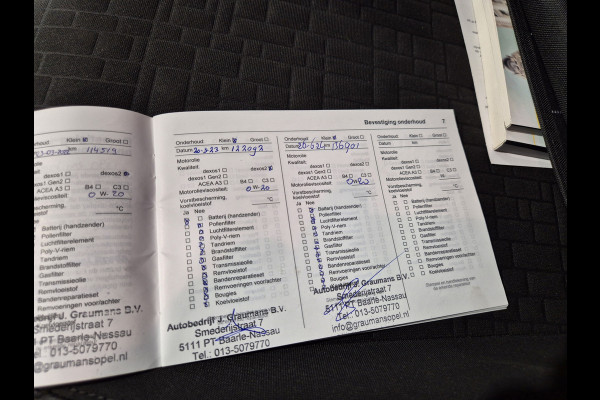 Bevestiging onderhoud 7
Onderhoud: Klein Groot
km 114519
dexos2
ACEA A3 B4 C3
0 W-20
°C
Batterij (handzender)
Pollenfilter
Luchtfilterelement
Poly-V-riem
Tandriem
Brandstoffilter
Gasfilter
Transmissieolie
Remvloeistof
Bandenreparatieset
Remvoeringen voor/achter
Bougies
Autobedrijf J. Graumans B.V.
Smederijstraat 7
5111 PT Baarle-Nassau
Tel.: 013-5079770
@graumansopel.nl
Onderhoud: Klein Groot
Datum 20-3-23 km 123092
Motorolie
Kwaliteit: dexos2
dexos1 Gen2
ACEA A3 B4 C3
Motorolieviscositeit 0 W-20
Vorstbescherming, °C
koelvloeistof
Ja Nee
Batterij (handzender)
Pollenfilter
Luchtfilterelement
Poly-V-riem
Tandriem
Brandstoffilter
Gasfilter
Transmissieolie
Remvloeistof
Bandenreparatieset
Remvoeringen voor/achter
Bougies
Koelvloeistof
Autobedrijf J. Graumans B.V.
Smederijstraat 7
5111 PT Baarle-Nassau
Tel.: 013-5079770
Onderhoud: Klein Groot
Datum km 136901
Motorolie
Kwaliteit:
dexos1 Gen2
ACEA A3 B4 C3
Motorolieviscositeit
Vorstbescherming, °C
koelvloeistof
Ja Nee
Batterij (handzender)
Pollenfilter
Luchtfilterelement
Poly-V-riem
Tandriem
Brandstoffilter
Gasfilter
Transmissieolie
Remvloeistof
Bandenreparatieset
Remvoeringen voor/achter
Bougies
Koelvloeistof
Autobedrijf J. Graumans B.V.
Smederijstraat 7
5111 PT Baarle-Nassau
Tel.: 013-5079770
info@graumansopel.nl
Onderhoud: Klein Groot
Datum km
Motorolie
Kwaliteit:
dexos1 Gen2
ACEA A3 B4 C3
Motorolieviscositeit W
Vorstbescherming, °C
koelvloeistof
Ja Nee
Batterij (handzender)
Pollenfilter
Luchtfilterelement
Poly-V-riem
Tandriem
Brandstoffilter
Gasfilter
Transmissieolie
Remvloeistof
Bandenreparatieset
Remvoeringen voor/achter
Bougies
Koelvloeistof